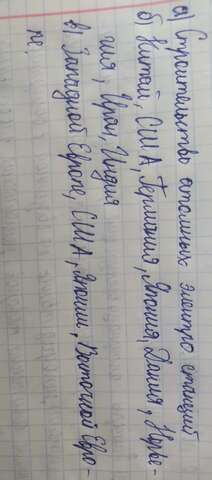 а) Строительство атомных электро станций
б) Китай, США, Германия, Япония, Дания, Норве-
гия, Иран, Индия
в) Западной Европе, США, Японии, Восточной Евро-
пе.